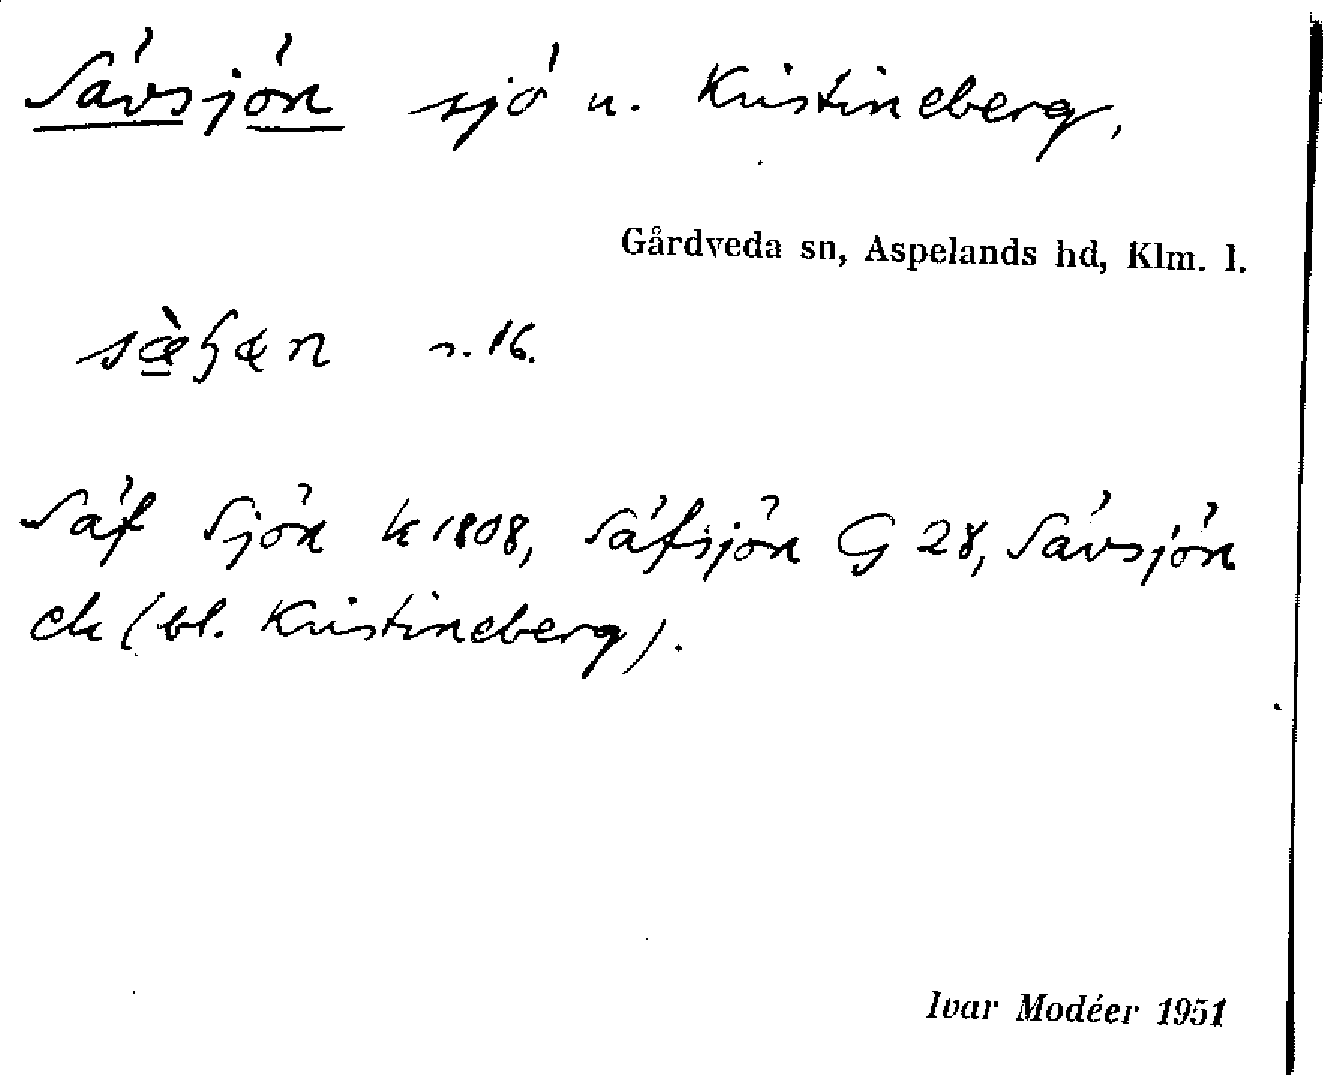 Sävsjön sjö u. Kristineberg,
Gårdveda sn, Aspelands hd, Klm. l.
16.
Säf Sjön k 1808, Säfsjön G 28, Sävsjön
ek (bl. Kristineberg).
Ivar Modéer 1951